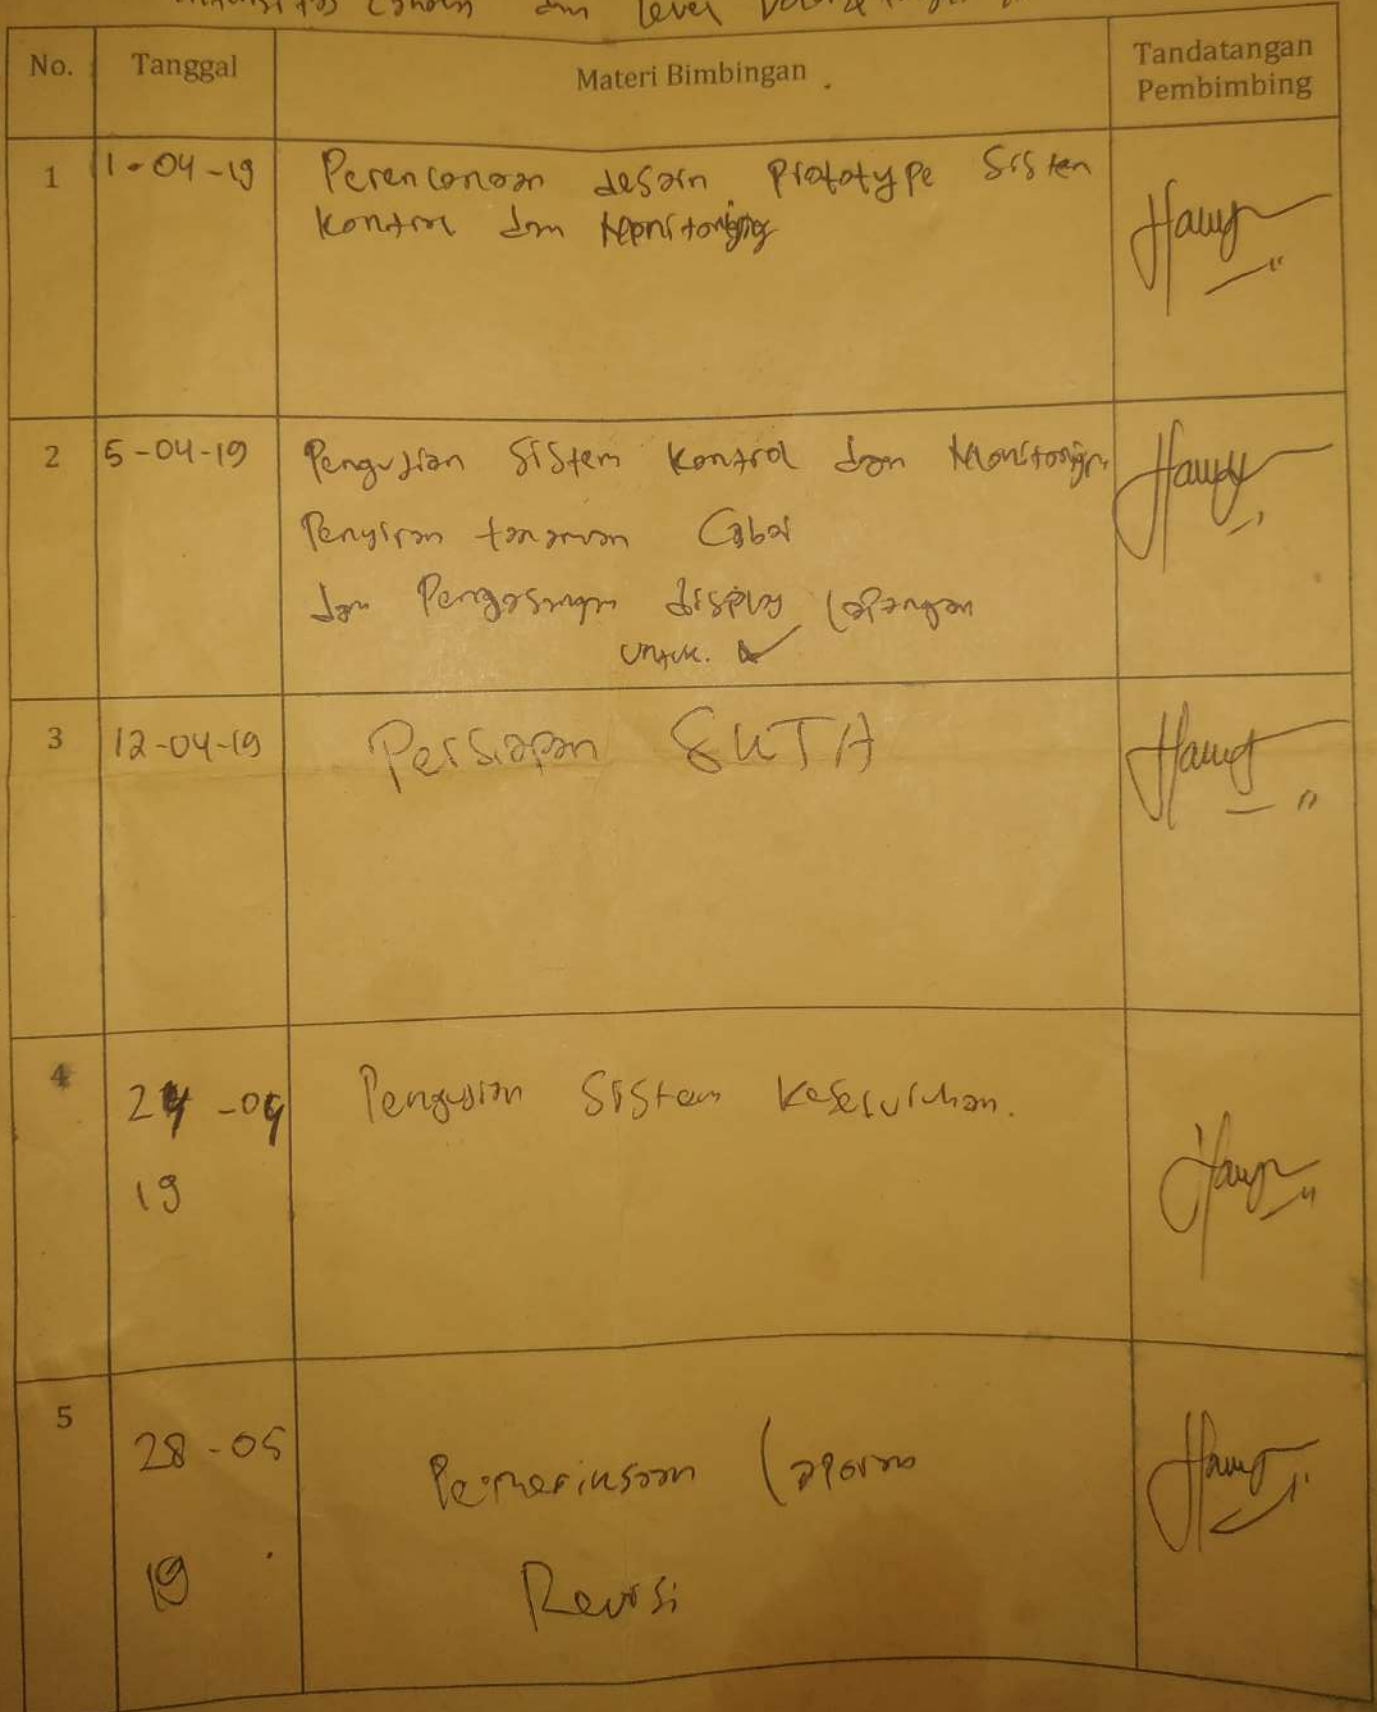 dan Level
No. Tanggal Materi Bimbingan Tandatangan Pembimbing
1 1-04-19 Perencanaan desain Prototype Sistem
Kontrol dan Monitoring
2 5-04-19 Pengujian Sistem Kontrol dan Monitoring
Penyiraman tanaman Cabai
dan display lapangan
untuk.
3 12-04-19 Persiapan SUTA
4 24-04
19
Pengujian Sistem Keseluruhan.
5 28-05
19
Pemeriksaan Laporan
Revisi